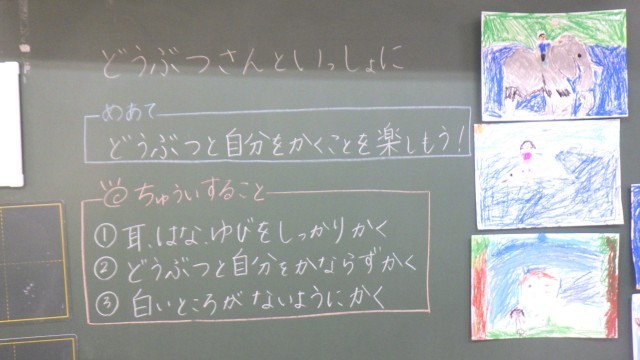 どうぶつさんといっしょに
めあて
どうぶつと自分をかくことを楽しもう!
ちゅういすること
① 耳、はな、ゆびをしっかりかく
② どうぶつと自分をかならずかく
③ 白いところがないようにかく